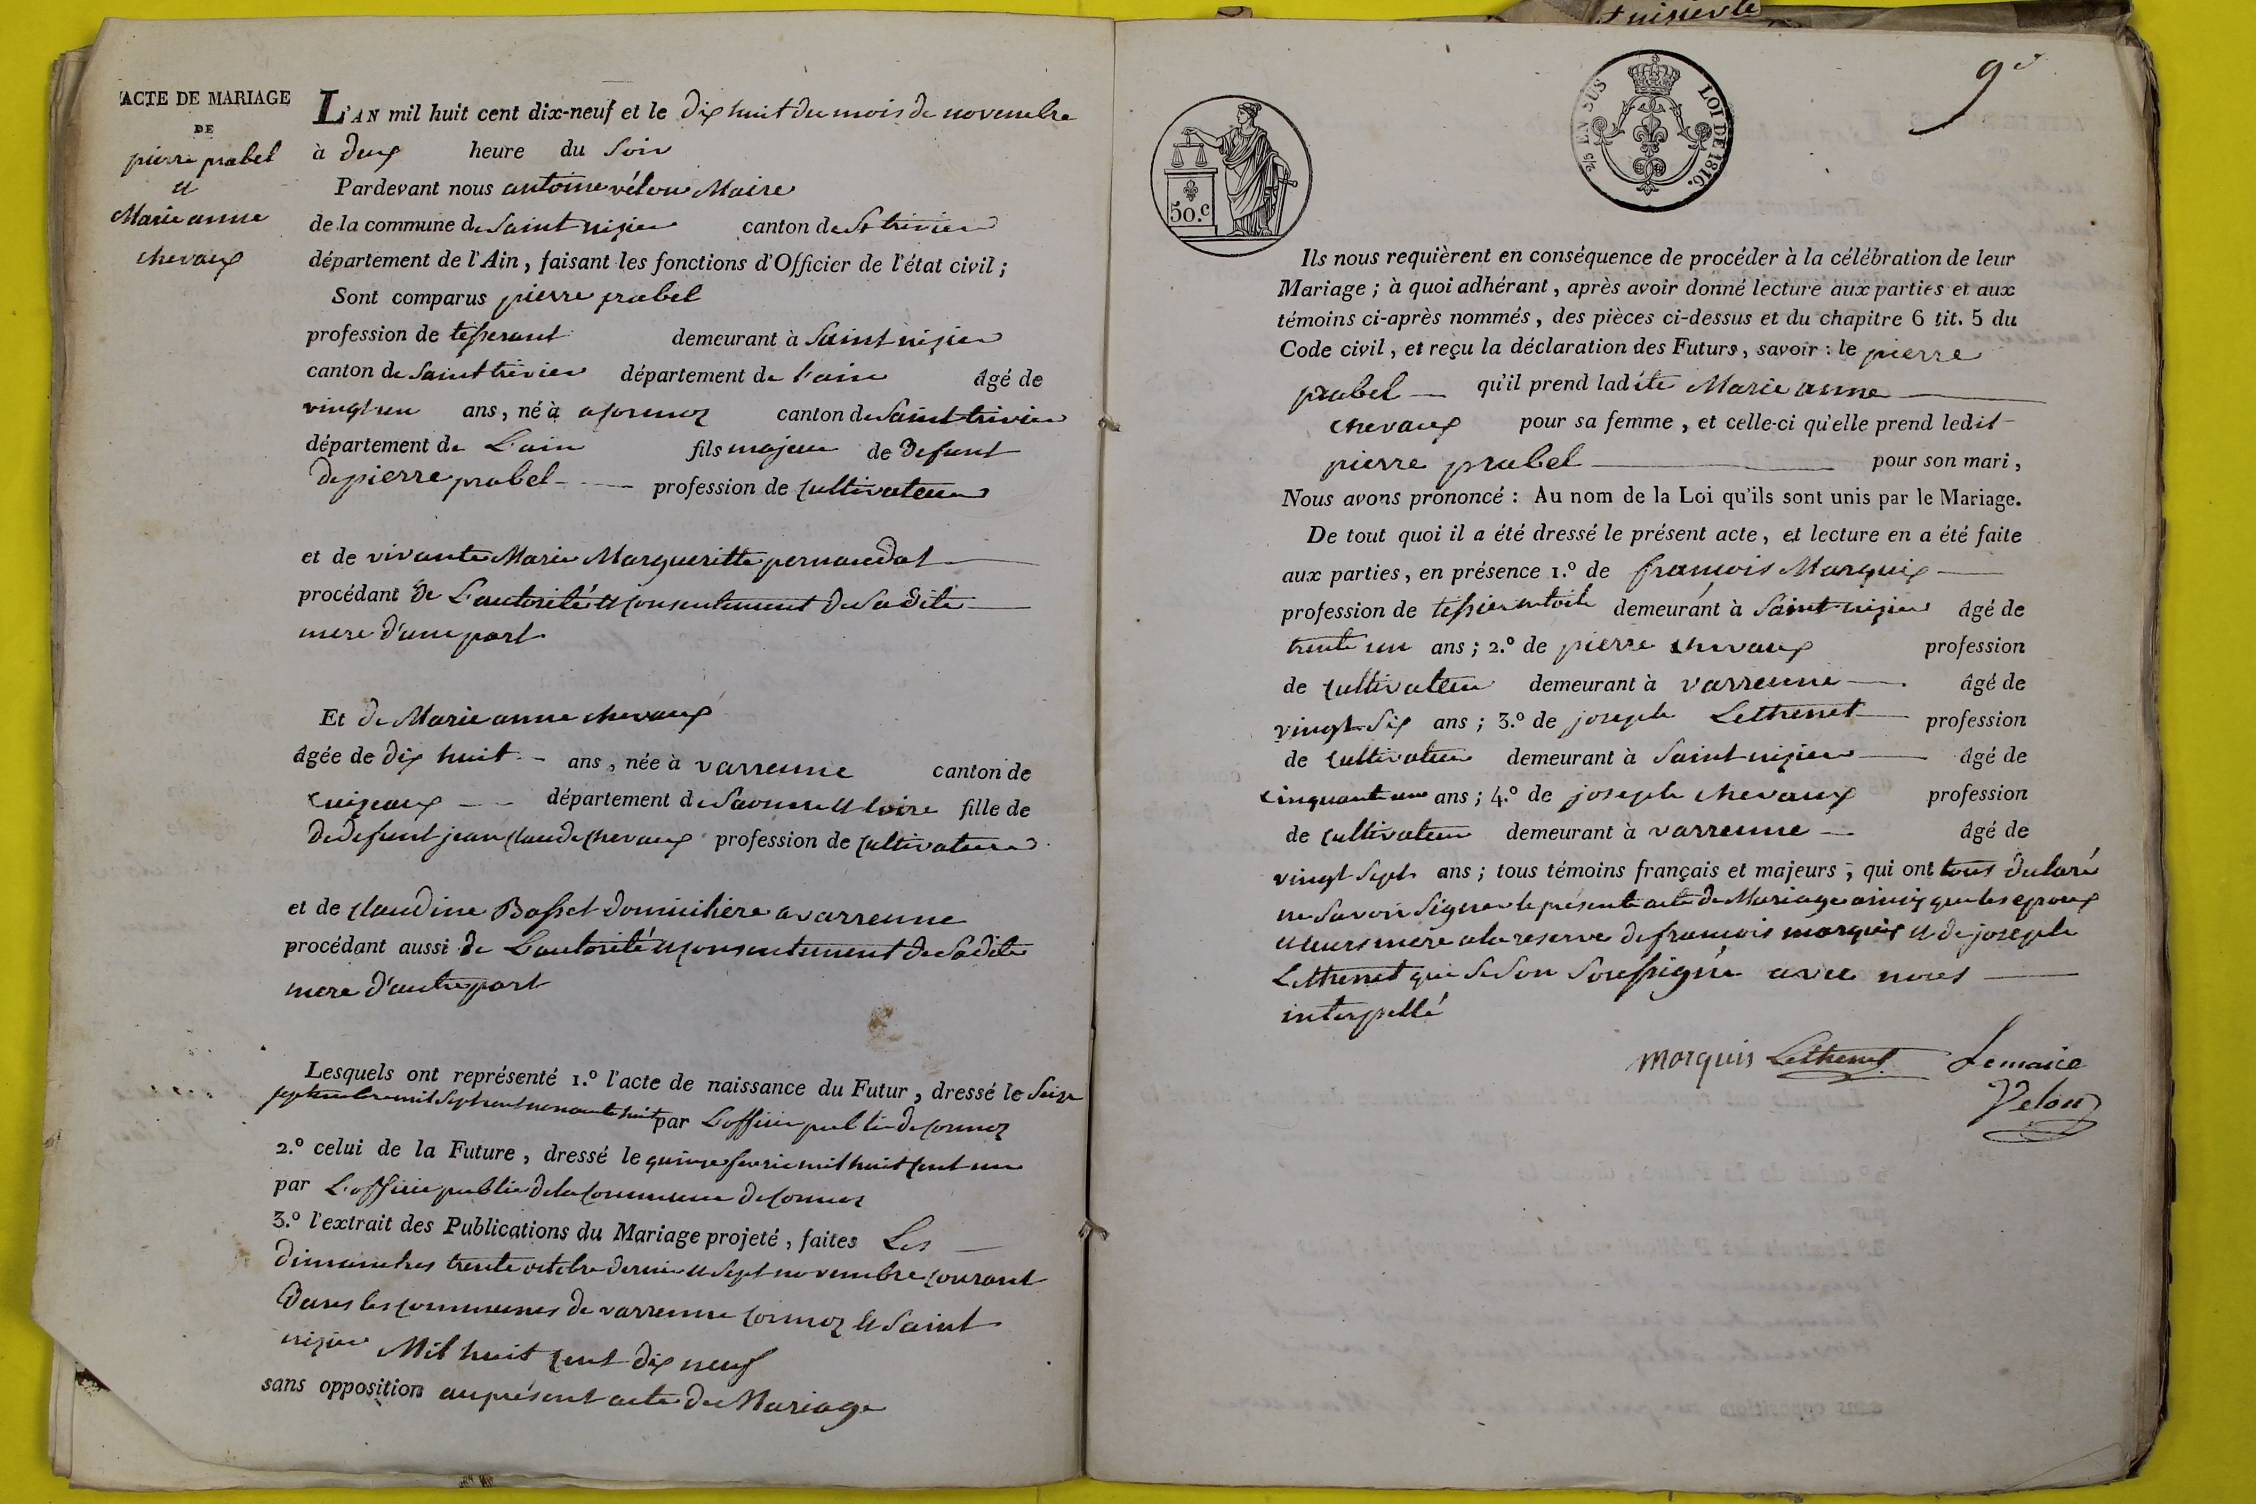 ACTE DE MARIAGE
DE
pierre prabel
et
Marie anne
chevaux
L'AN mil huit cent dix-neuf et le dix huit du mois de novembre
à deux heure du Soir
Pardevant nous antoine vélon Maire
de la commune de Saint nizier canton de St trivier
département de l'Ain, faisant les fonctions d'Officier de l'état civil;
Sont comparus pierre prabel
profession de tisserant demeurant à Saint nizier
canton de Saint trivier département de l'ain âgé de
vingt un ans, né à a cormoz canton de Saint trivier
département de L'ain fils majeur de defunt
de pierre prabel profession de Cultivateur
et de vivante Marie Margueritte pernaudat
procédant de L'autorité et consentement de Sa dite
mere d'une part
Et de Marie anne chevaux
âgée de dix huit ans, née à varrenne canton de
cuizeaux département de Saonne et loire fille de
de defunt jean claude chevaux profession de cultivateur
et de claudine Basset domiciliere a varrenne
procédant aussi de L'autorité et consentement de Sadite
mere d'autre part
Lesquels ont représenté 1.º l'acte de naissance du Futur, dressé le Seize
septembre mil Sept cent nonante huit par L'officier public de cormoz
2.º celui de la Future, dressé le quinze fevrie mil huit cent un
par L'officie public de la commune de cormoz
3.º l'extrait des Publications du Mariage projeté, faites Les
dimanches trente octobre dernier et Sept novembre courant
Dans les communes de varrenne cormoz et Saint
nizier Mil huit cent dix neuf
sans opposition au présent acte de Mariage
tuisierte
50.c
2/5 EN SUS
LOI DE 1816.
9e
Ils nous requièrent en conséquence de procéder à la célébration de leur
Mariage; à quoi adhérant, après avoir donné lecture aux parties et aux
témoins ci-après nommés, des pièces ci-dessus et du chapitre 6 tit. 5 du
Code civil, et reçu la déclaration des Futurs, savoir: le pierre
prabel qu'il prend ladite Marie anne
chevaux pour sa femme, et celle-ci qu'elle prend ledit
pierre prabel pour son mari,
Nous avons prononcé: Au nom de la Loi qu'ils sont unis par le Mariage.
De tout quoi il a été dressé le présent acte, et lecture en a été faite
aux parties, en présence 1.º de francois Marquis
profession de tissier en toile demeurant à Saint nizier âgé de
trente un ans; 2.º de pierre chevaux profession
de cultivateur demeurant à varrenne âgé de
vingt Six ans; 3.º de joseph Lethenet profession
de cultivateur demeurant à Saint nizier âgé de
cinquante un ans; 4.º de joseph chevaux profession
de cultivateur demeurant à varrenne âgé de
vingt Sept ans; tous témoins français et majeurs, qui ont tous déclaré
ne Savoir Signer le présent acte de Mariage ainsy que les epoux
et leurs mere a la reserve de francois marquis et de joseph
Lethenet qui Se Son Soussigné avec nous
interpellé
Marquis Lethenet Le maire
Velon